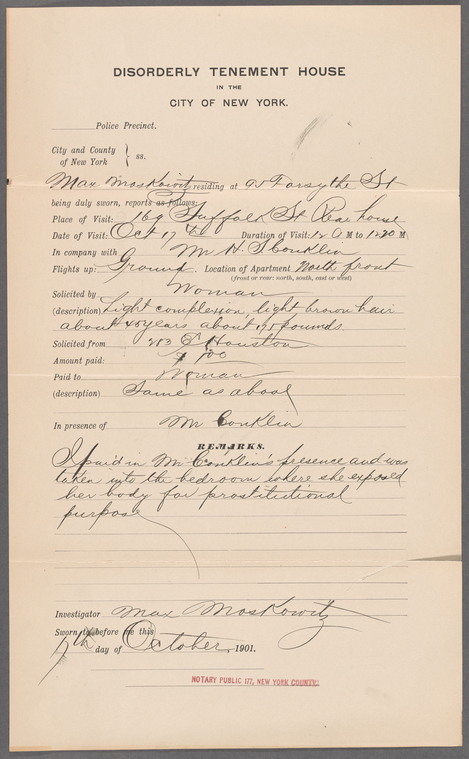 DISORDERLY TENEMENT HOUSE
IN THE
CITY OF NEW YORK.
Police Precinct.
City and County
of New York } ss.
Max Moskowitz residing at Forsythe St
being duly sworn, reports as follows:
Place of Visit: 169 Suffolk St Rear house
Date of Visit: Oct 17th Duration of Visit: 12 M to 12 30 M
In company with Mr H S Conklin
Flights up: Ground Location of Apartment North front
(front or rear: north, south, east or west)
Solicited by Woman
(description) Light complexion, light brown hair
about 45 years about 190 pounds.
Solicited from 203 E Houston
Amount paid: $1.00
Paid to Woman
(description) Same as above
In presence of Mr Conklin
REMARKS.
I paid in Mr Conklin's presence and was
taken into the bedroom where she exposed
her body for prostitutional
purpose
Investigator Max Moskowitz
Sworn to before me this
day of October, 1901.
NOTARY PUBLIC 177, NEW YORK COUNTY.